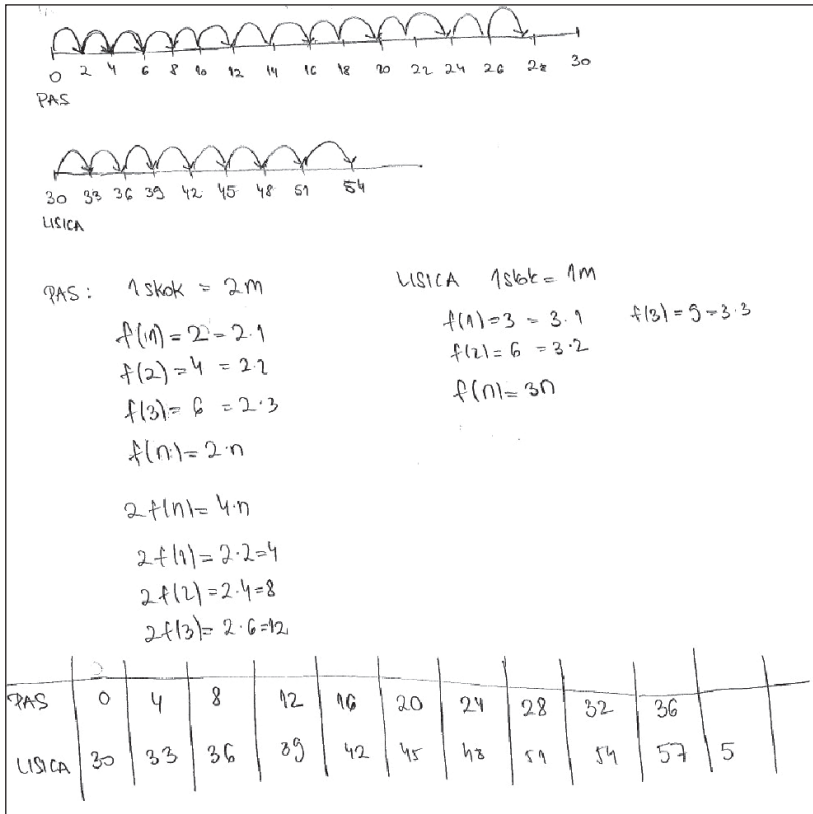 0 2 4 6 8 10 12 14 16 18 20 22 24 26 28 30
PAS
30 33 36 39 42 45 48 51 54
LISICA
PAS: 1 skok = 2m
f(1) = 2 = 2·1
f(2) = 4 = 2·2
f(3) = 6 = 2·3
f(n) = 2·n
2f(n) = 4·n
2f(1) = 2·2=4
2f(2) = 2·4=8
2f(3) = 2·6=12
LISICA 1skok = 1m
f(1)=3 = 3·1 f(3) = 9=3·3
f(2)=6 = 3·2
f(n) = 3n
PAS 0 4 8 12 16 20 24 28 32 36
LISICA 30 33 36 39 42 45 48 51 54 57 5